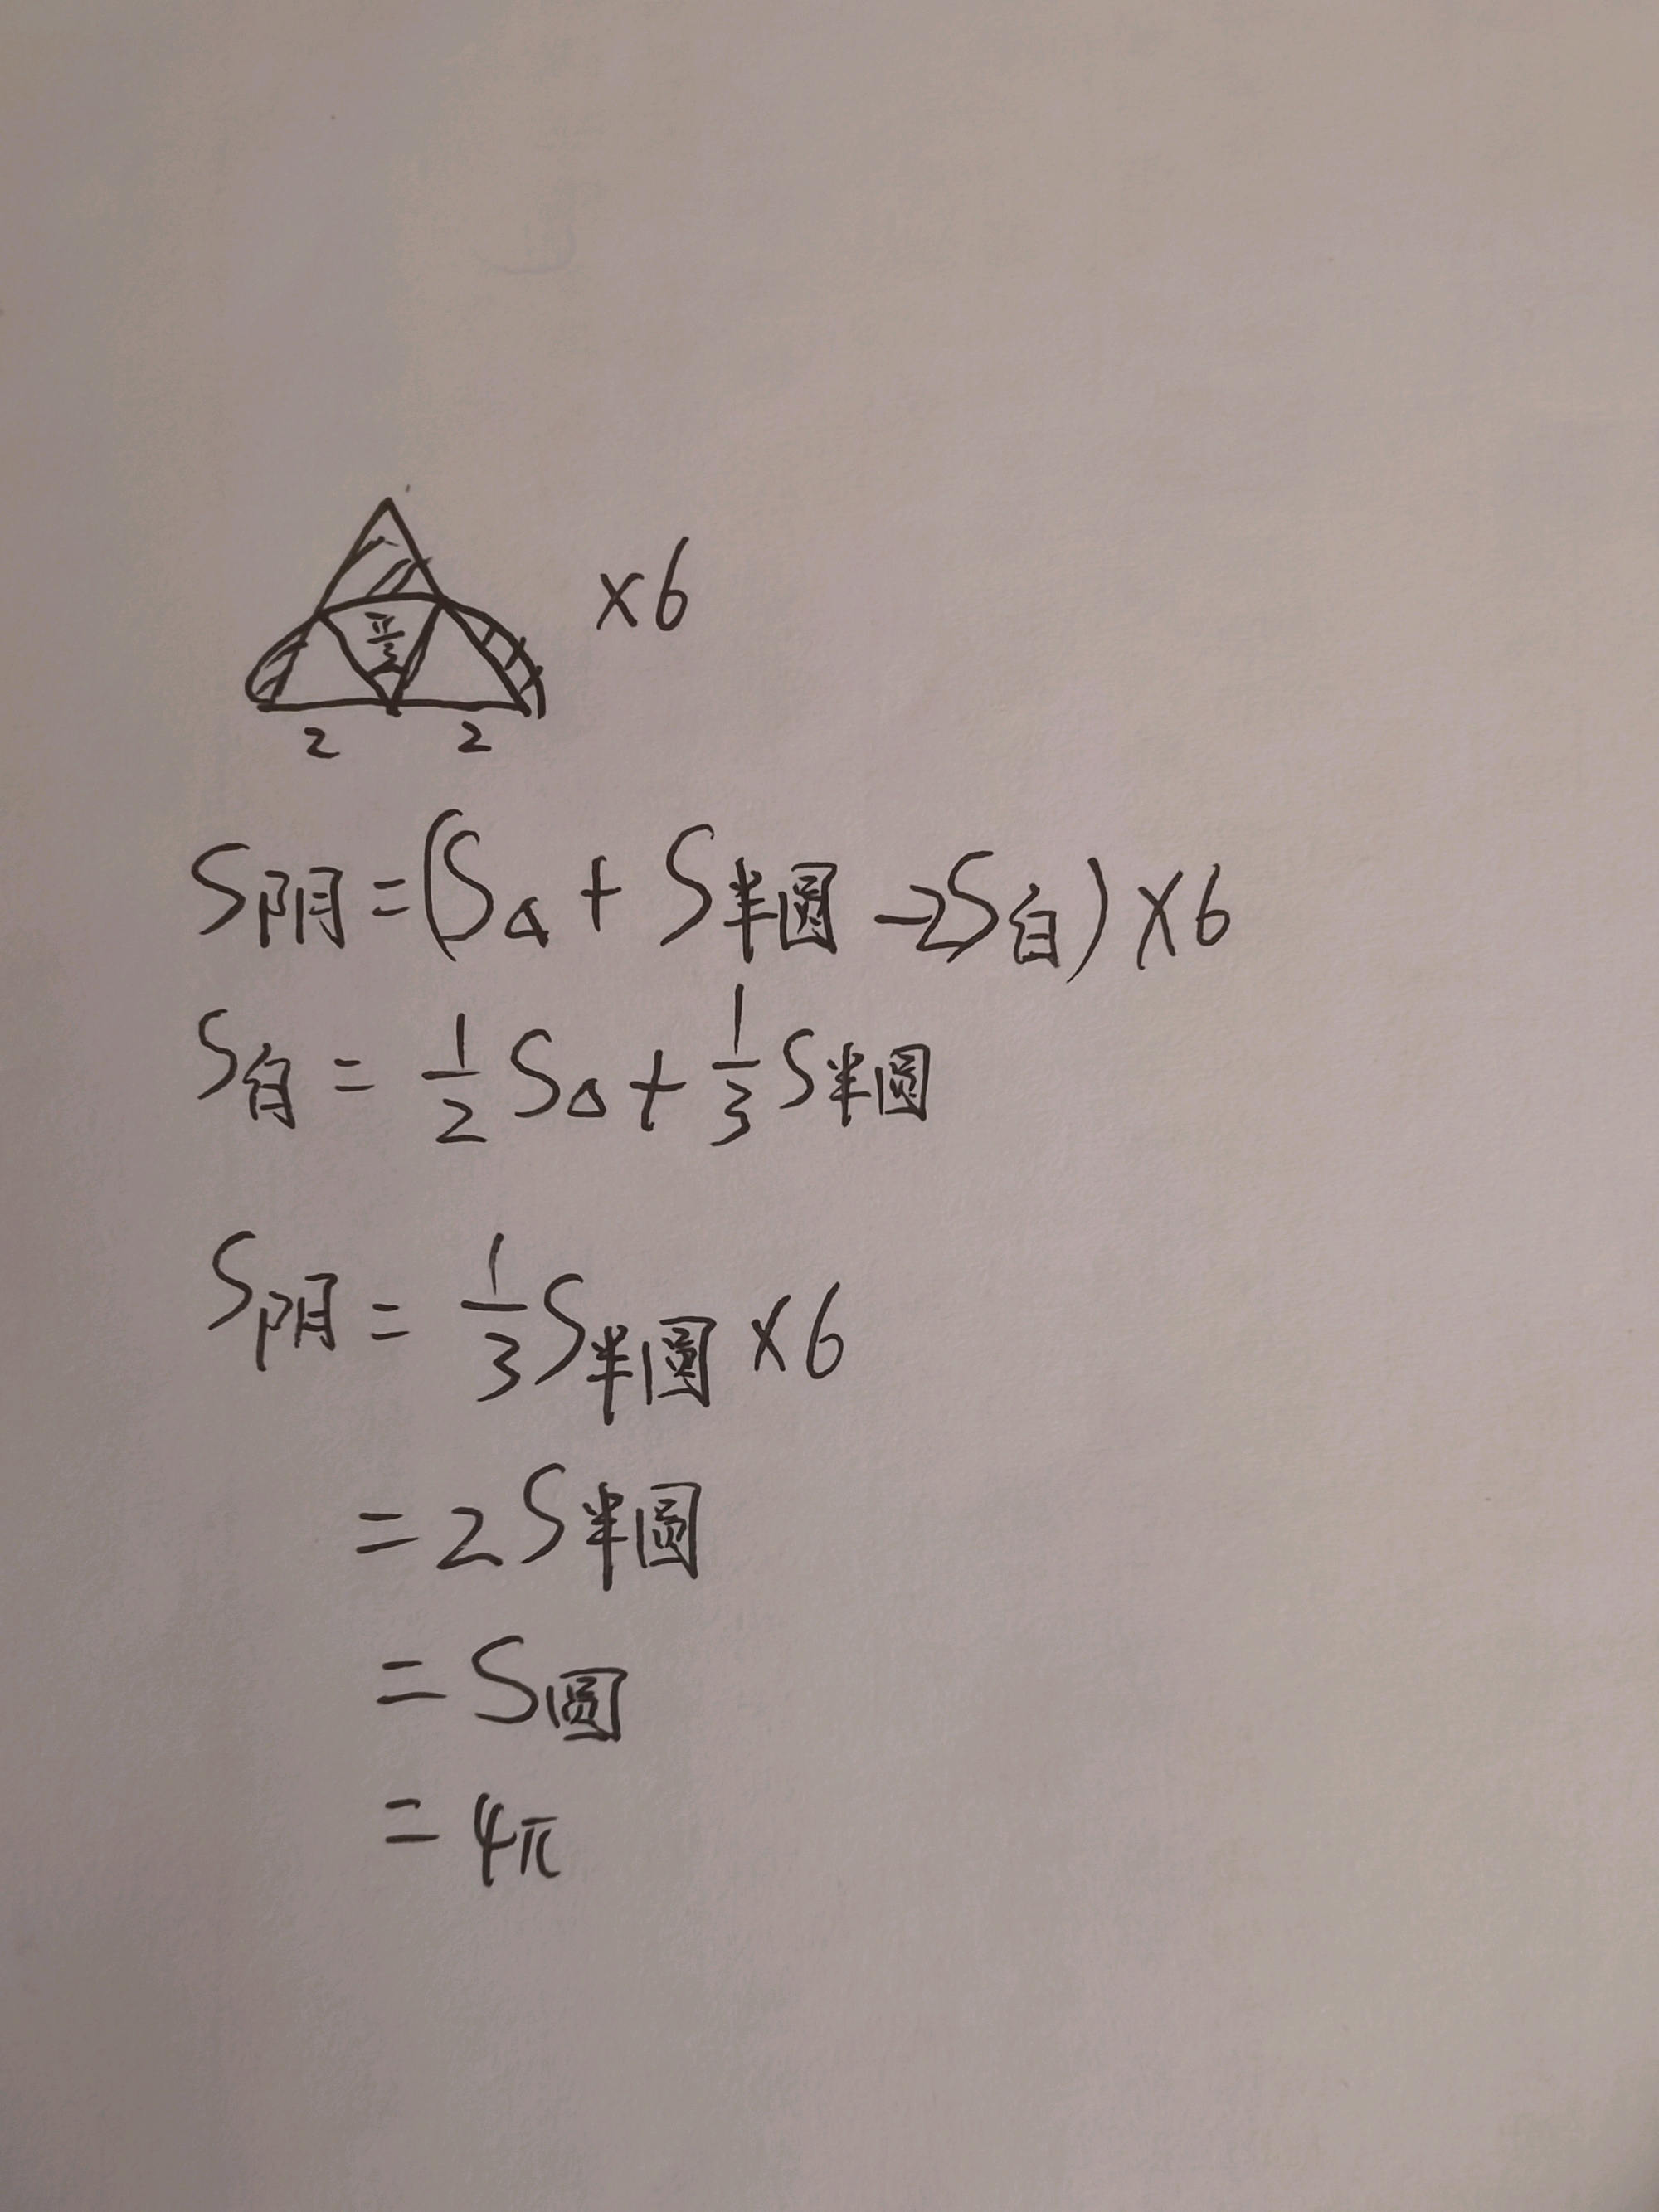 ×6
π/3
2 2
S阴=(S△+S半圆-2S白)×6
S白=1/2S△+1/3S半圆
S阴=1/3S半圆×6
=2S半圆
=S圆
=4π